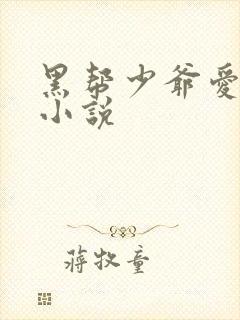 黑帮少爷愛
小說
蔣牧童